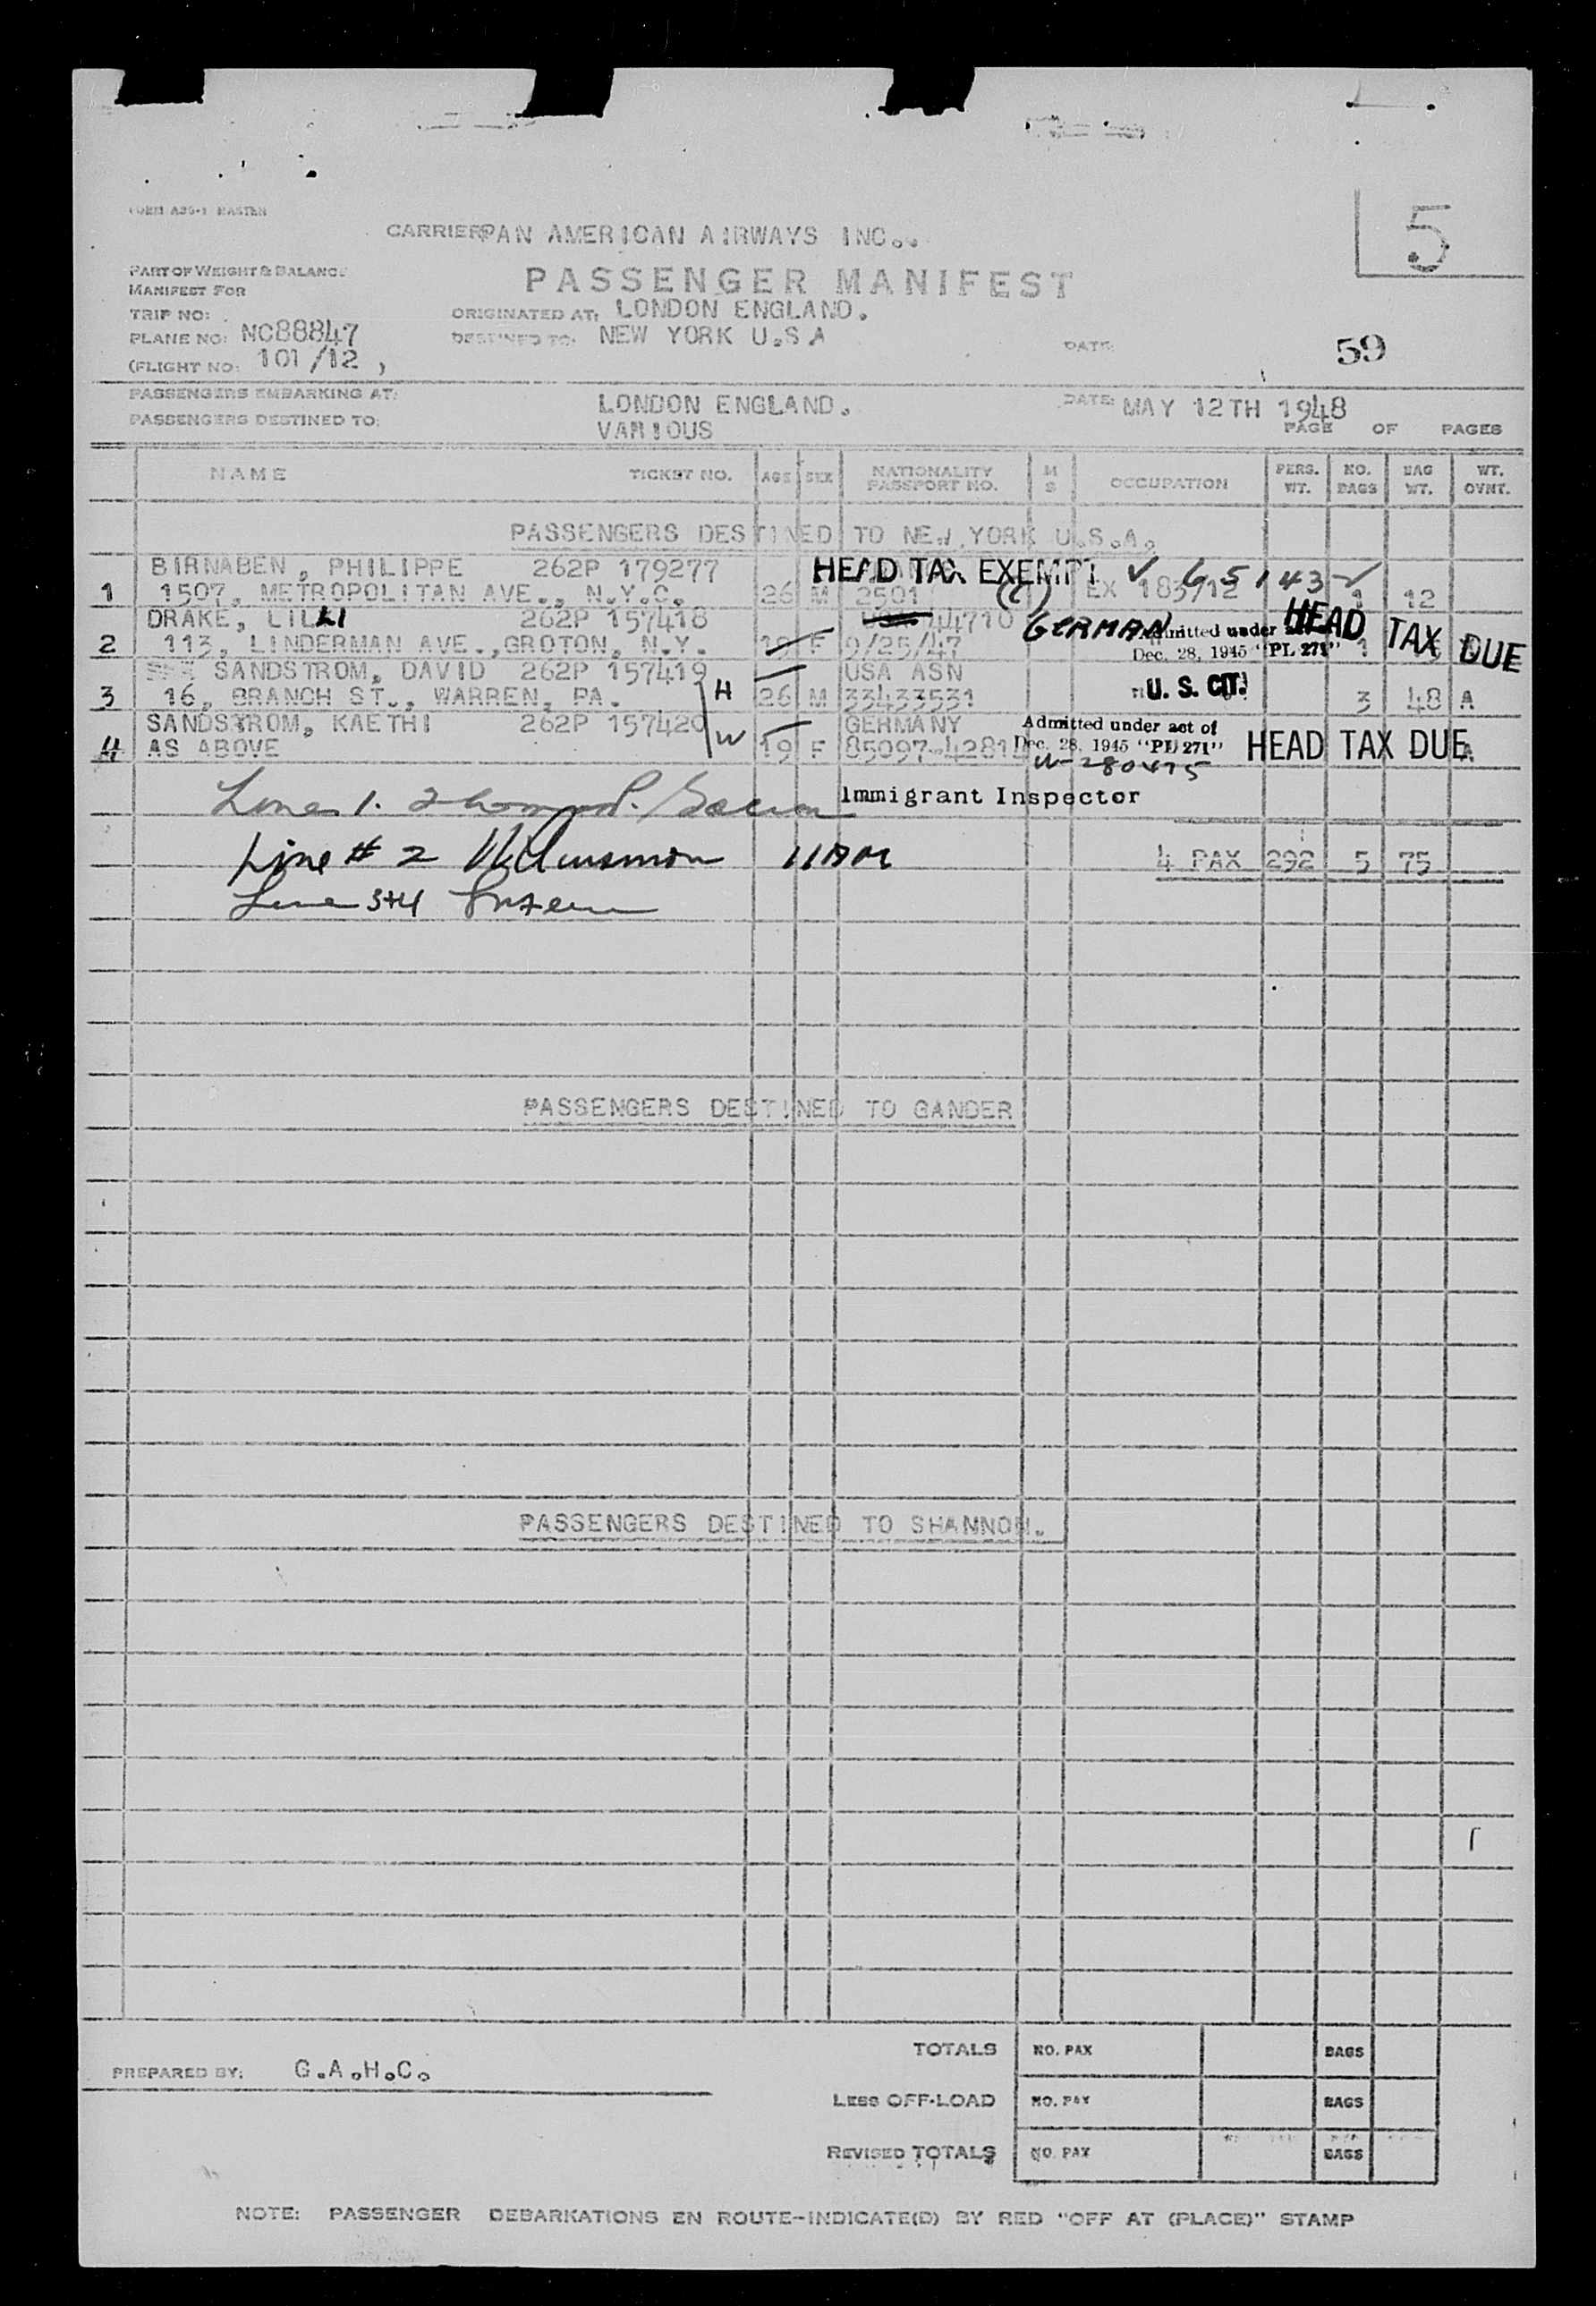 FORM ABG-1 MASTER
CARRIER PAN AMERICAN AIRWAYS INC..
5
PART OF WEIGHT & BALANCE
MANIFEST FOR
PASSENGER MANIFEST
TRIP NO:
ORIGINATED AT: LONDON ENGLAND.
PLANE NO: NC88847
DESTINED TO: NEW YORK U.S.A
DATE:
59
(FLIGHT NO: 101/12 )
PASSENGERS EMBARKING AT: LONDON ENGLAND.
DATE: MAY 12TH 1948
PASSENGERS DESTINED TO: VARIOUS
PAGE OF PAGES
NAME TICKET NO. AGE SEX NATIONALITY PASSPORT NO. M S OCCUPATION PERS. WT. NO. BAGS BAG WT. WT. OVNT.
PASSENGERS DESTINED TO NEW YORK U.S.A.
BIRNABEN, PHILIPPE 262P 179277 HEAD TAX EXEMPT ✓ 65143 ✓
1 1507, METROPOLITAN AVE., N.Y.C. 26 M 2501 (C) EX 183712 1 12
DRAKE, LILLI 262P 157418 44710 GERMAN Admitted under HEAD TAX DUE
2 113, LINDERMAN AVE., GROTON, N.Y. 19 F 9/25/47 Dec. 28, 1945 "PL 271" 1
SANDSTROM, DAVID 262P 157419 USA ASN
3 16, BRANCH ST., WARREN, PA. H 26 M 33433531 U. S. CIT. 3 48 A
SANDSTROM, KAETHI 262P 157420 GERMANY Admitted under act of
4 AS ABOVE W 19 F 85097-4281 Dec. 28, 1945 "PL 271" HEAD TAX DUE
W-280475
Line 1.
Immigrant Inspector
Line # 2
4 PAX 292 5 75
Line 3+4
PASSENGERS DESTINED TO GANDER
PASSENGERS DESTINED TO SHANNON.
TOTALS NO. PAX BAGS
PREPARED BY: G.A.H.C.
LESS OFF-LOAD NO. PAX BAGS
REVISED TOTALS NO. PAX BAGS
NOTE: PASSENGER DEBARKATIONS EN ROUTE-INDICATE(D) BY RED "OFF AT (PLACE)" STAMP